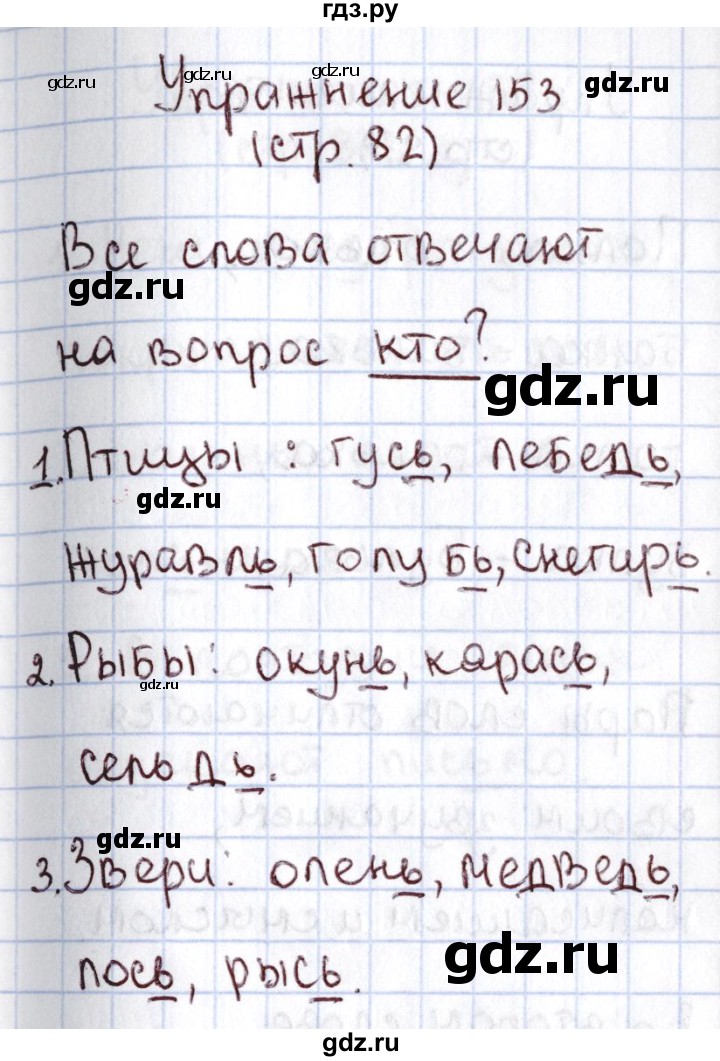 гдз.ру
Упражнение 153
(стр. 82)
Все слова отвечают
на вопрос кто?
1. Птицы: гусь, лебедь,
журавль, голубь, снегирь.
2. Рыбы: окунь, карась,
сельдь.
3. Звери: олень, медведь,
лось, рысь.
gdz.ru
gdz.ru
gdz.ru
gdz.ru
gdz.ru
gdz.ru
gdz.ru
gdz.ru
gdz.ru
gdz.ru